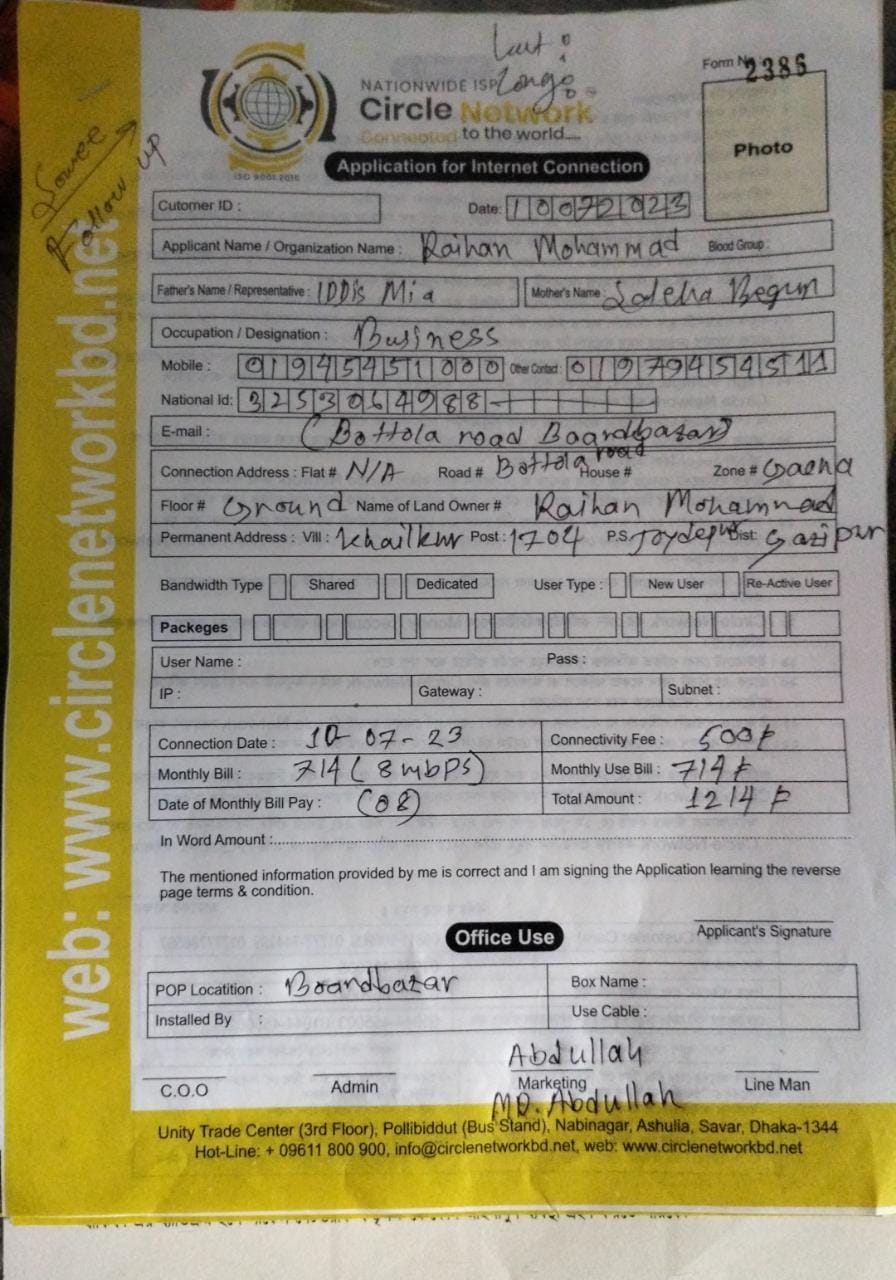 Lout:
Longo
Form No: 2385
NATIONWIDE ISP
Circle Network
Connected to the world....
ISO 9001:2015
Application for Internet Connection
Photo
Follow up
Cutomer ID :
Date: 10072023
Applicant Name / Organization Name : Raihan Mohammad Blood Group :
Father's Name / Representative : IDDis Mia Mother's Name : Saleha Begum
Occupation / Designation : Business
Mobile : 01945451000 Other Contact : 01979454511
National Id: 3253064988
E-mail : (Bottola road Boardbazar)
Connection Address : Flat # N/A Road # Bottola road House # Zone # Gacha
Floor # Ground Name of Land Owner # Raihan Mohammad
Permanent Address : Vill : Khailkur Post : 1704 P.S. Joydepur Dist: Gazipur
Bandwidth Type Shared Dedicated User Type : New User Re-Active User
Packeges
User Name : Pass :
IP : Gateway : Subnet :
Connection Date : 10-07-23 Connectivity Fee : 500৳
Monthly Bill : 714 (8 mbps) Monthly Use Bill : 714৳
Date of Monthly Bill Pay : (08) Total Amount : 1214৳
In Word Amount :
The mentioned information provided by me is correct and I am signing the Application learning the reverse
page terms & condition.
Applicant's Signature
Office Use
POP Locatition : Boardbazar Box Name :
Installed By : Use Cable :
Abdullah
C.O.O Admin Marketing Line Man
MD. Abdullah
Unity Trade Center (3rd Floor), Pollibiddut (Bus Stand), Nabinagar, Ashulia, Savar, Dhaka-1344
Hot-Line: + 09611 800 900, info@circlenetworkbd.net, web: www.circlenetworkbd.net
web: www.circlenetworkbd.net